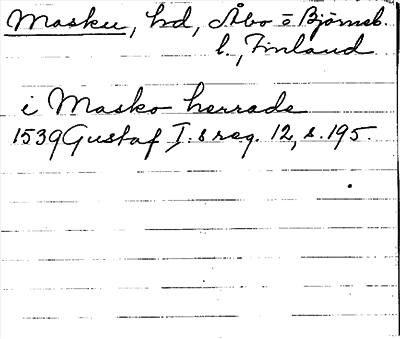 Masku, hd, Åbo o Björneb.
l., Finland
i Masko herrade
1539 Gustaf I:s reg. 12, s. 195.